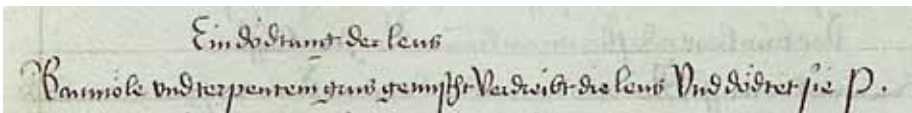 Ein dödtung der leus
Baumöle vnd terpentein gnus gemischt Verdreibt die leus Vnd dödtet sie P.